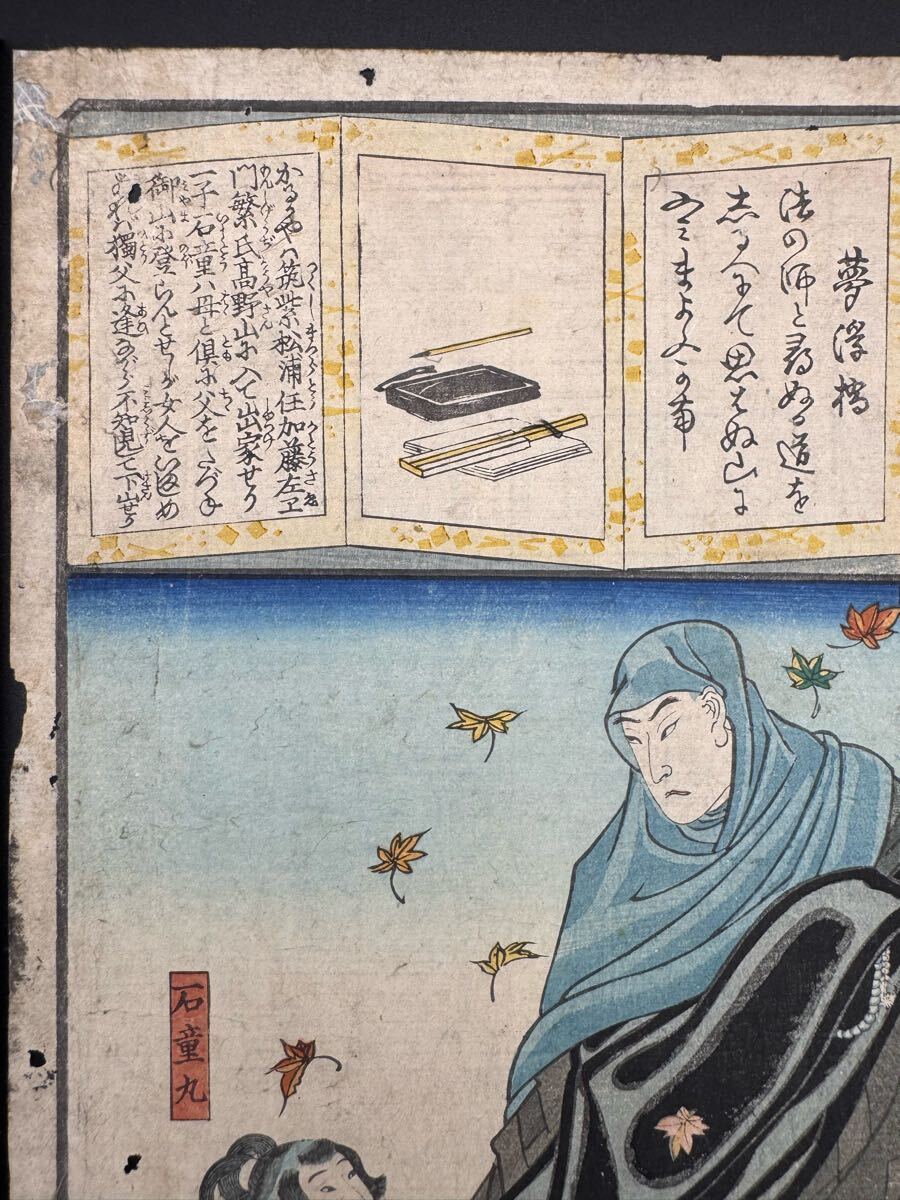 夢浮橋
法の師と尋ぬる道を
しるべにて思はぬ山に
ふみまよふかな
かるかやハ筑紫松浦任加藤左エ
門繁氏高野山に入て出家せり
一子石童ハ母と倶に父をたづね
御山に登らんとせしが女人を
獨父に逢ながら不知見て下山せり
石童丸